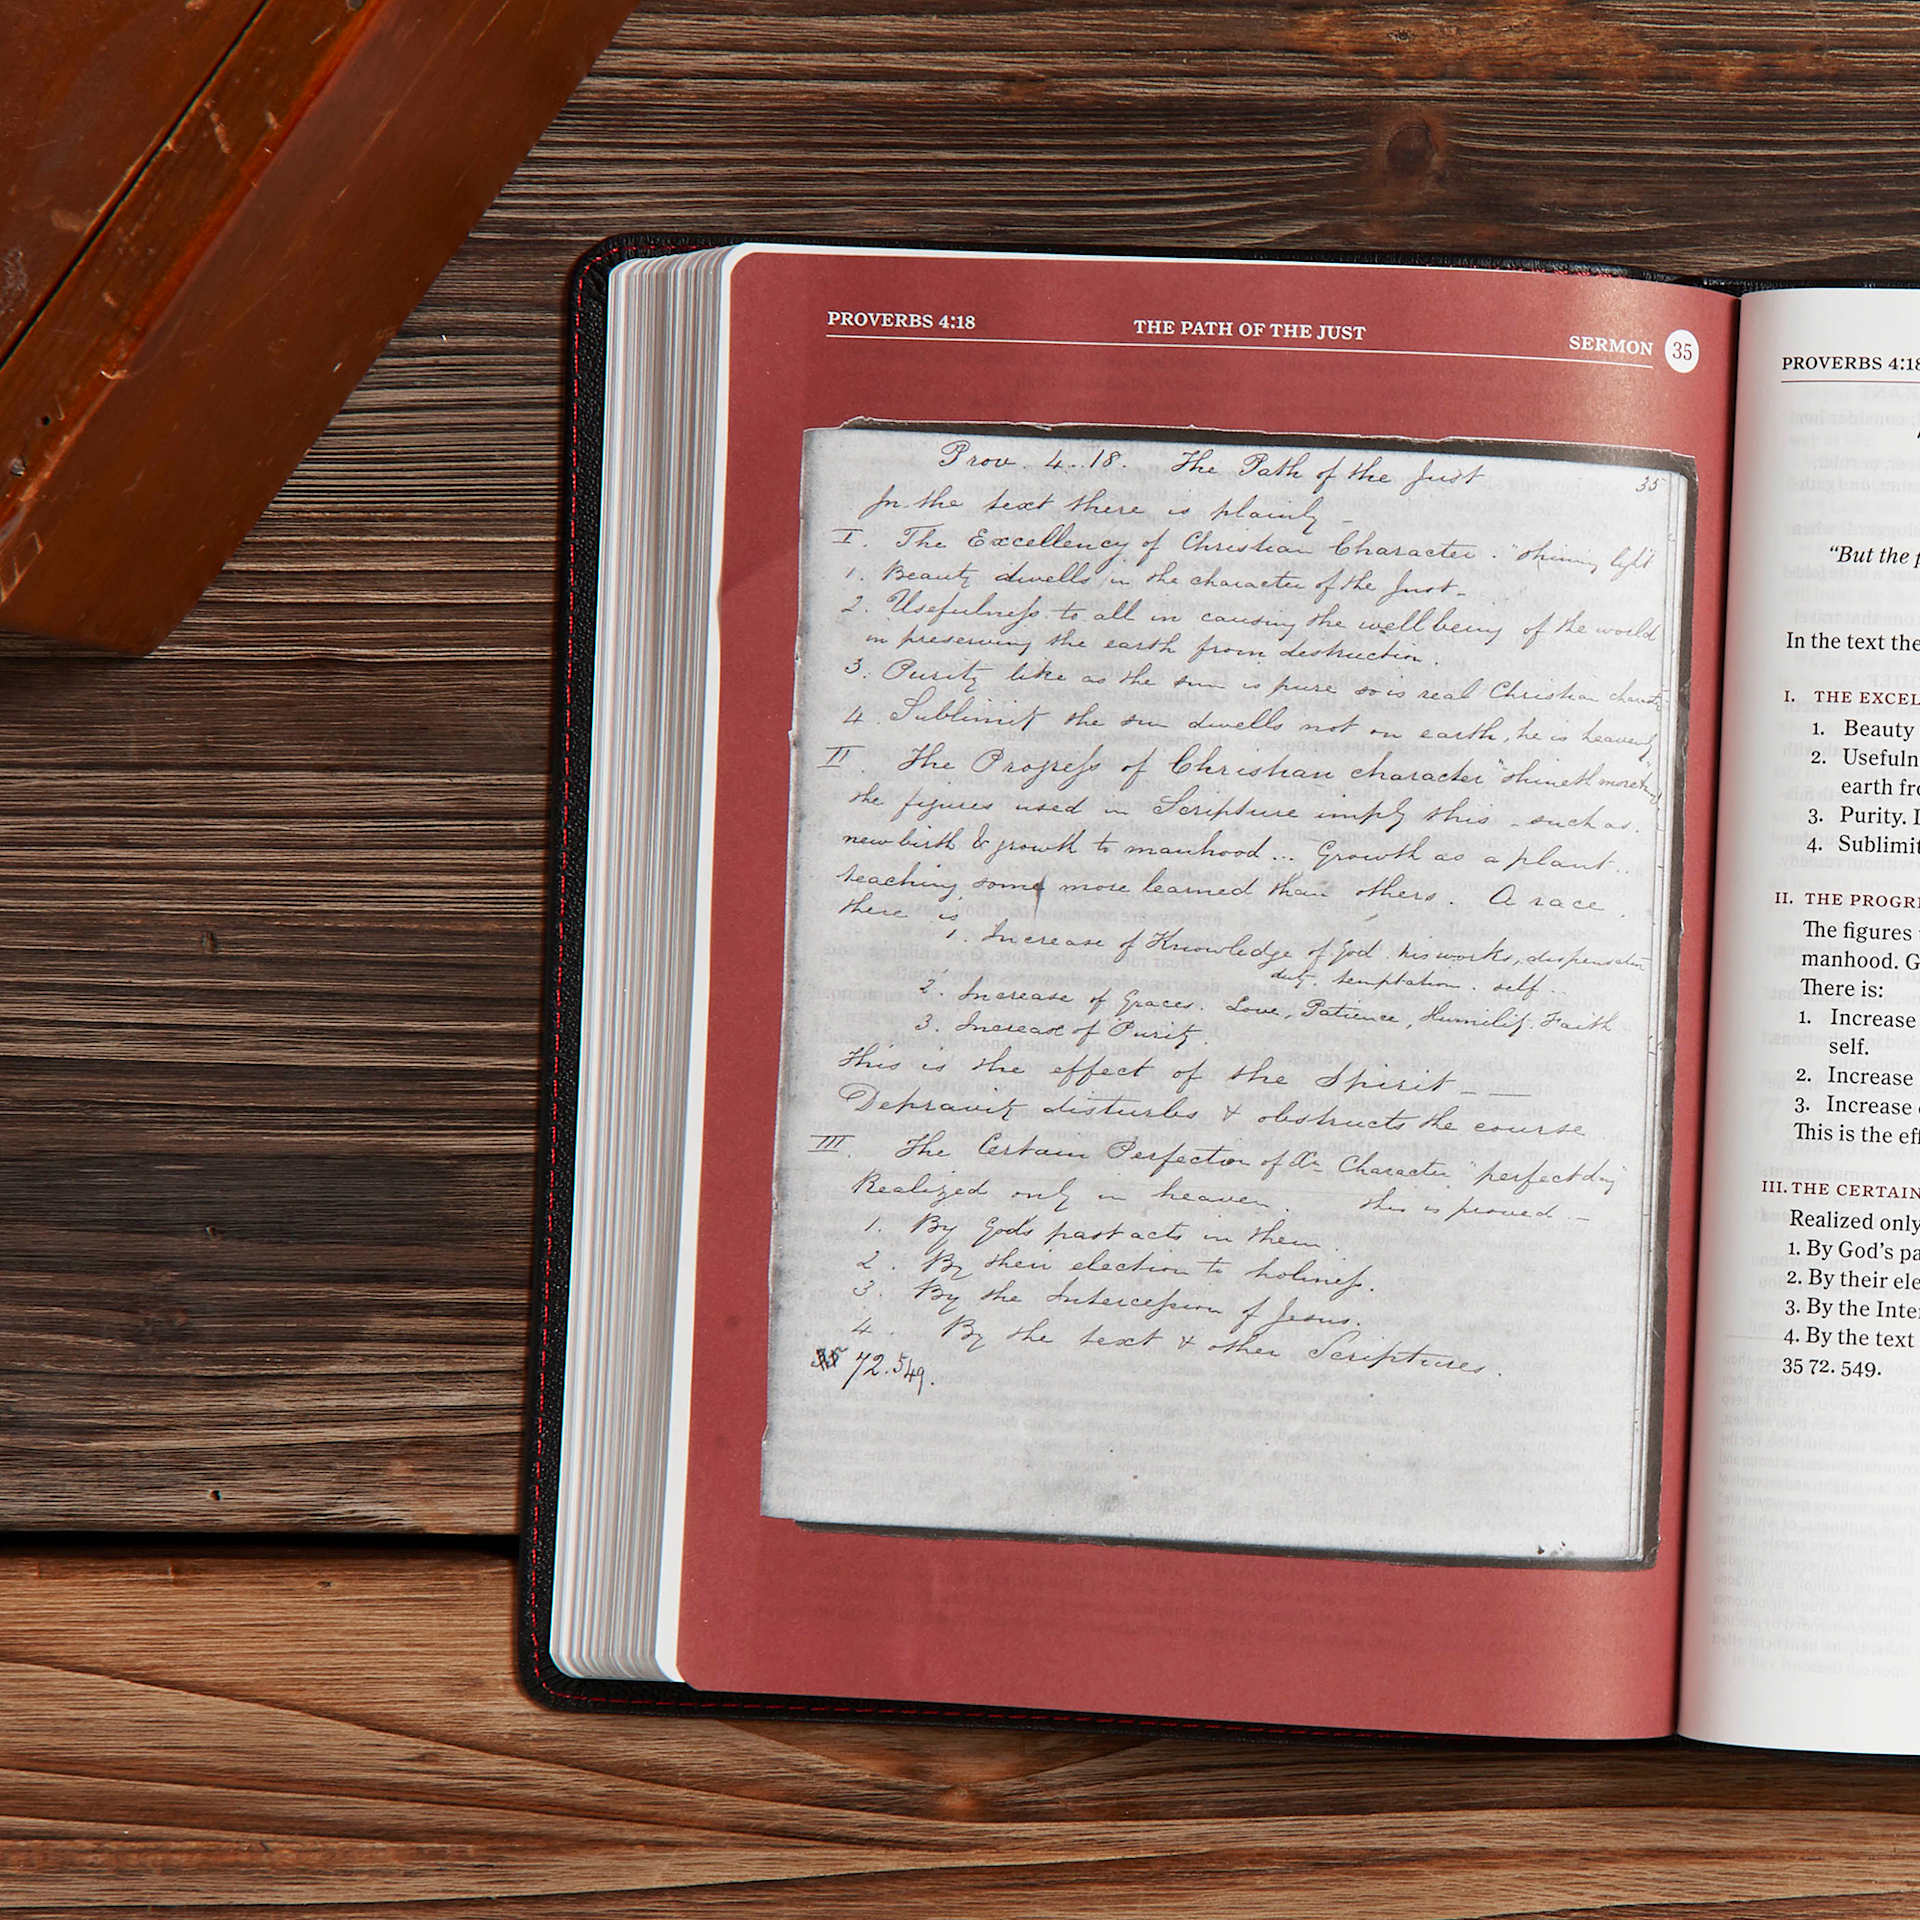 PROVERBS 4:18 THE PATH OF THE JUST SERMON 35
Prov. 4..18. The Path of the Just 35
In the text there is plainly –
I. The Excellency of Christian Character. "shining light"
1. Beauty dwells in the character of the Just –
2. Usefulness to all in causing the wellbeing of the world
in preserving the earth from destruction.
3. Purity like as the sun is pure so is real Christian
4. Sublimity the sun dwells not on earth, he is heavenly
II. The Progress of Christian character "shineth more
the figures used in Scripture imply this – such as.
new birth & growth to manhood... Growth as a plant..
teaching some more learned than others. A race.
there is
1. Increase of Knowledge of God. his works, dispensation
duty. temptation. self..
2. Increase of Graces. Love, Patience, Humility. Faith
3. Increase of Purity.
This is the effect of the Spirit –
Depravity disturbs & obstructs the course
III. The Certain Perfection of Xn Character "perfect day"
Realized only in heaven. this is proved –
1. By Gods past acts in them.
2. By their election to holiness.
3. By the Intercession of Jesus.
4. By the text & other Scriptures.
35 72.549.
PROVERBS 4:18
"But the
In the text the
I. THE EXCEL
1. Beauty
2. Usefuln
earth fro
3. Purity.
4. Sublimit
II. THE PROGR
The figures
manhood. G
There is:
1. Increase
self.
2. Increase
3. Increase
This is the eff
III. THE CERTAIN
Realized only
1. By God's pa
2. By their ele
3. By the Inter
4. By the text
35 72. 549.